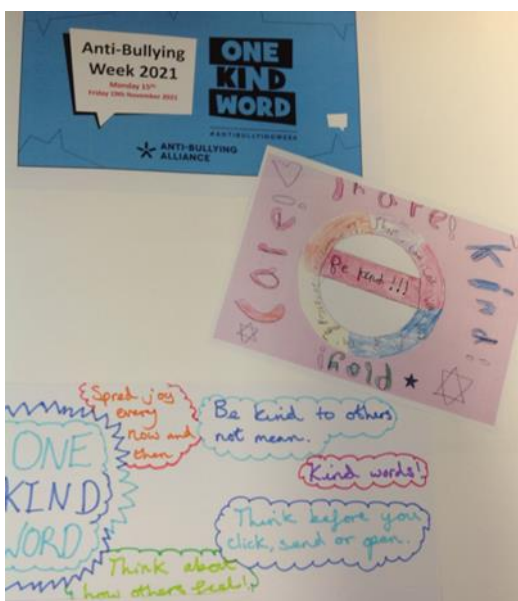 Anti-Bullying
Week 2021
Monday 15th
Friday 19th November 2021
ONE
KIND
WORD
#ANTIBULLYINGWEEK
ANTI-BULLYING
ALLIANCE
Share!
Care!
Kind!
Be kind!!!
Play
Spred joy
every
now and
then
Be kind to others
not mean.
ONE
KIND
WORD
Kind words!
Think before you
click, send or open.
Think about
how others feel!